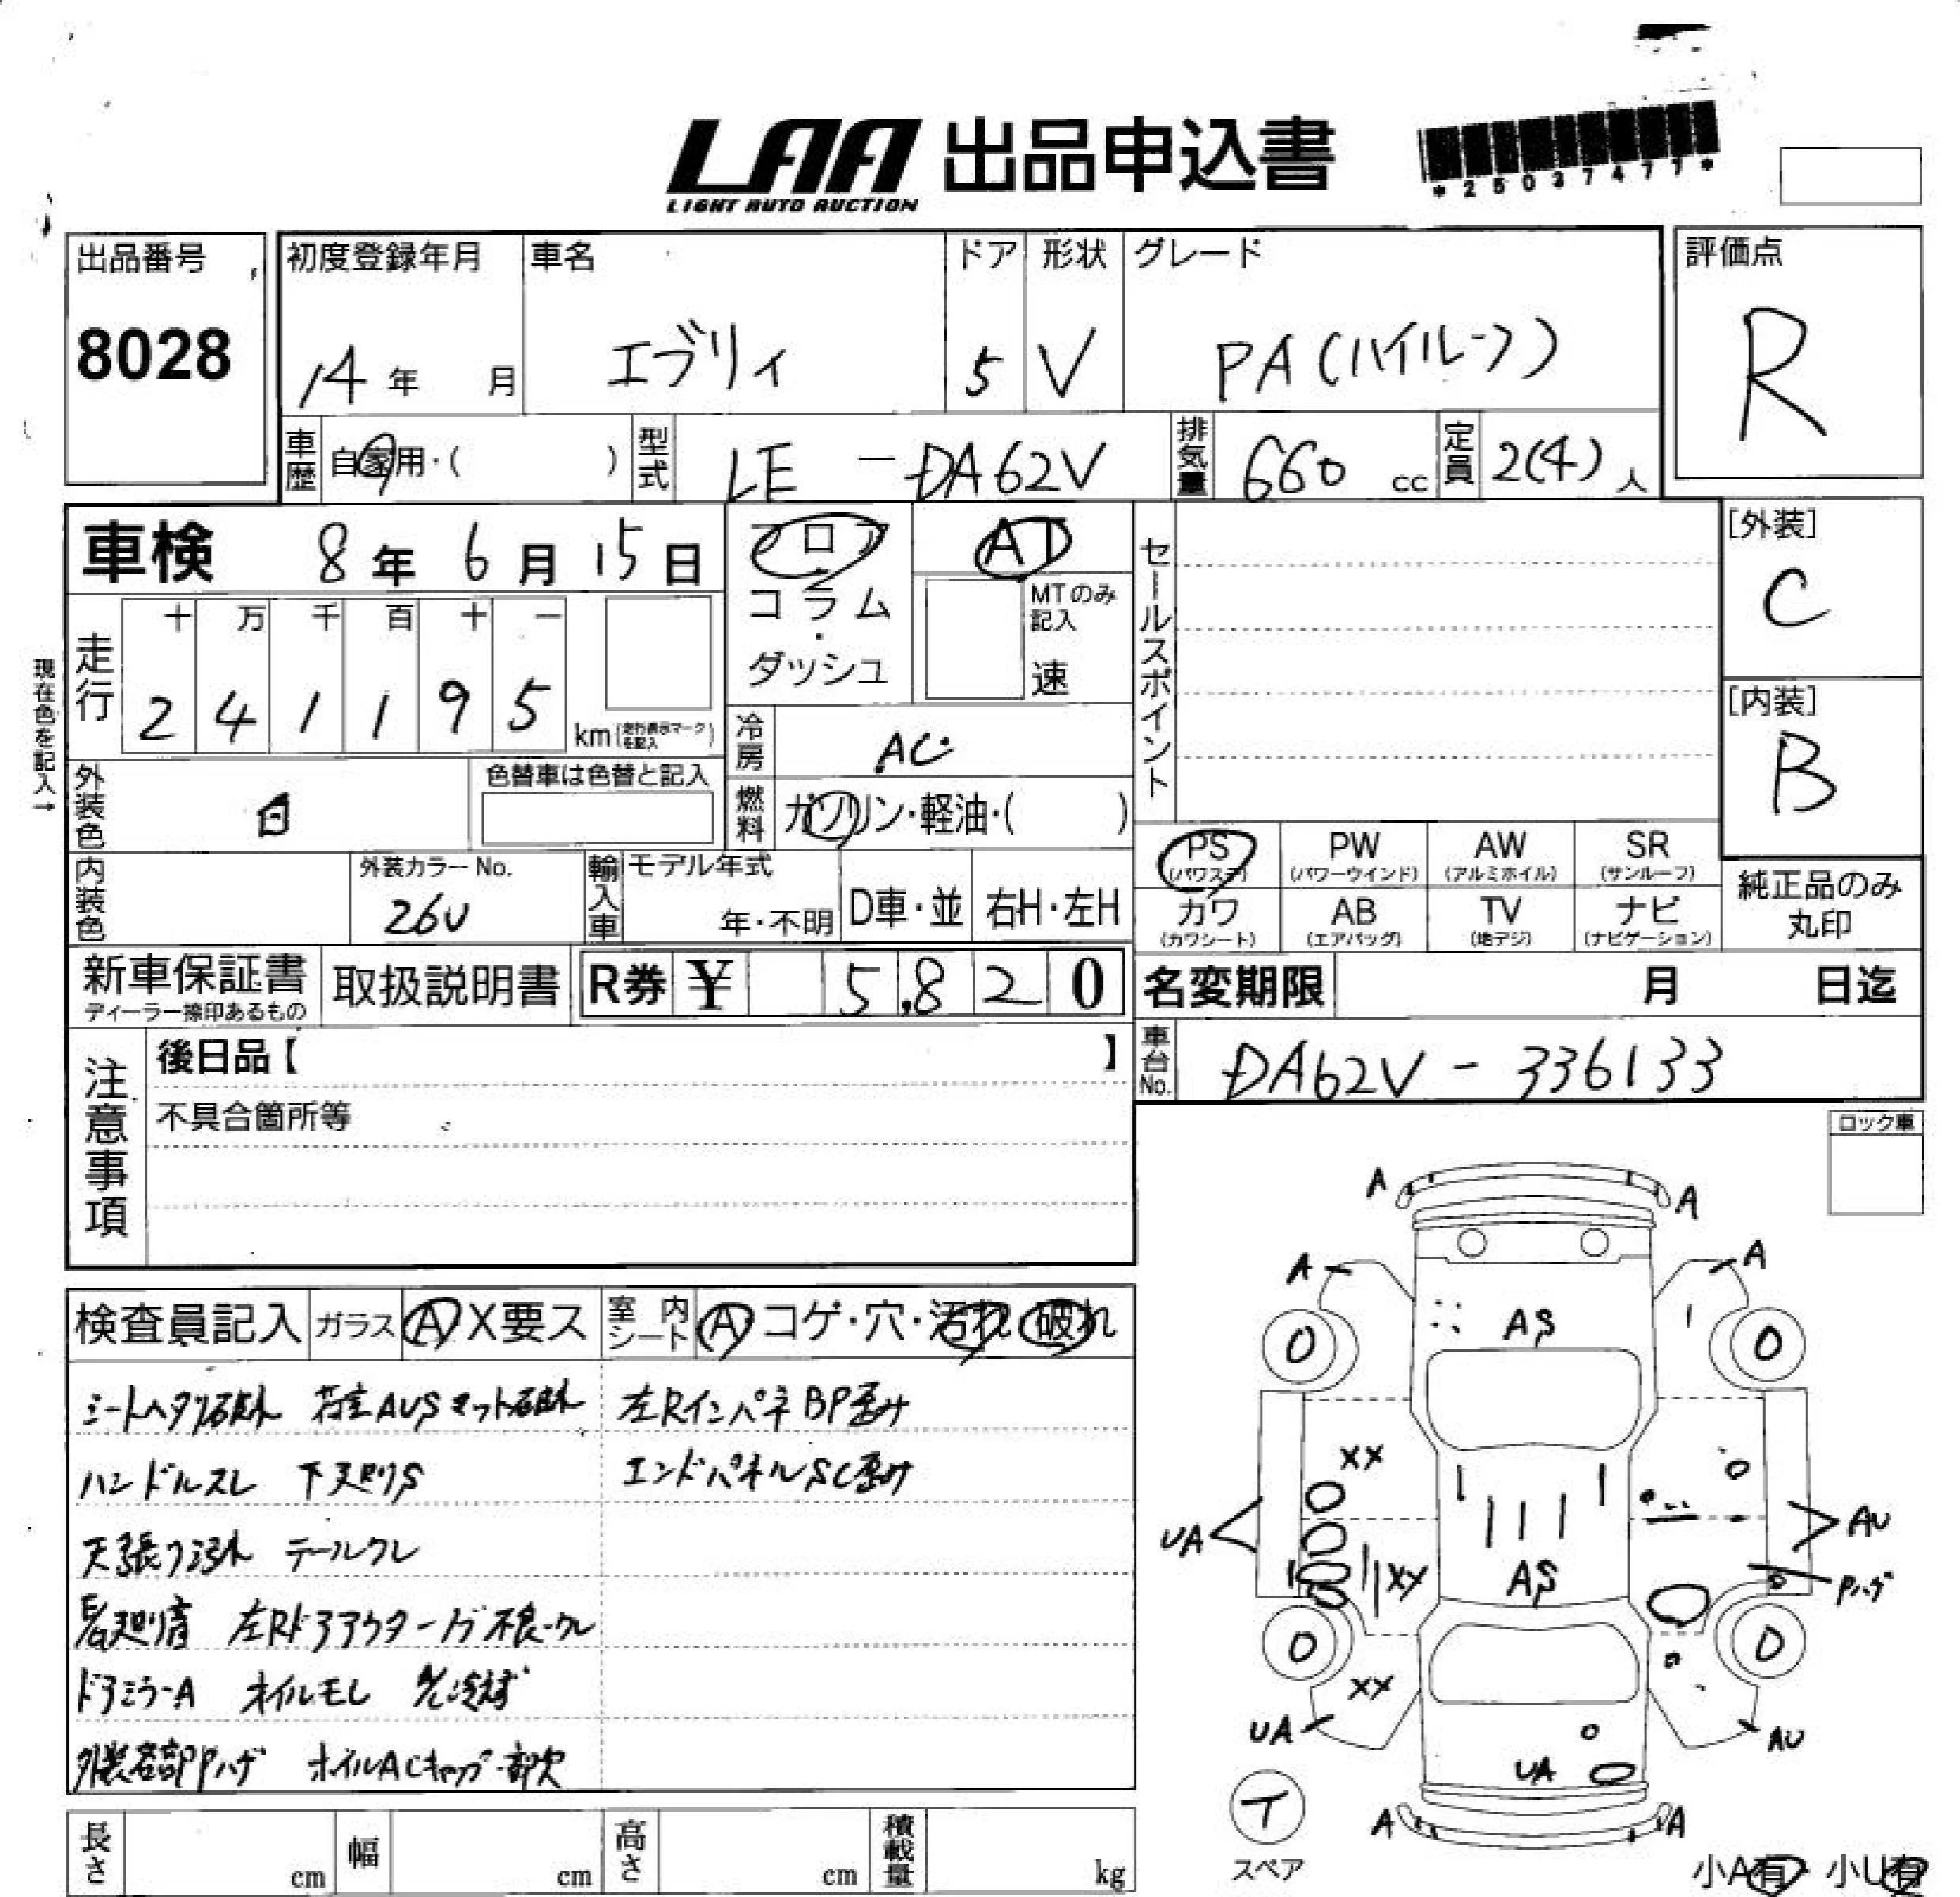 LAA 出品申込書
LIGHT AUTO AUCTION
*25037477*
出品番号 初度登録年月 車名 ドア 形状 グレード 評価点
8028 14年 月 エブリィ 5 V PA(ハイルーフ) R
車歴 自家用・( ) 型式 LE - DA62V 排気量 660 cc 定員 2(4) 人
車検 8年 6月 15日 フロア AT セールスポイント [外装]
C
コラム・ダッシュ MTのみ記入 速
走行 十 万 千 百 十 一
2 4 1 1 9 5 km(走行表示マークを記入)
[内装]
B
現在色を記入→
冷房 AC
外装色 白 色替車は色替と記入
燃料 ガソリン・軽油・( )
PS PW AW SR
(パワステ) (パワーウインド) (アルミホイル) (サンルーフ)
純正品のみ丸印
内装色 外装カラーNo. 26U 輸入車 モデル年式 年・不明 D車・並 右H・左H
カワ AB TV ナビ
(カワシート) (エアバッグ) (地デジ) (ナビゲーション)
新車保証書 取扱説明書 R券 ¥ 5,820 名変期限 月 日迄
ディーラー捺印あるもの
注意事項 後日品【 】 車台No. DA62V - 336133
不具合箇所等
ロック車
A A
A A
AS
0 0
検査員記入 ガラス A X 要ス 室内シート A コゲ・穴・汚れ 破れ
シートヘタリ破れ 荷室AUSマット破れ 左RインパネBP歪み
ハンドルスレ 下廻りS エンドパネルSC歪み
天張り汚れ テールワレ
廻り音 左Rドアアウター 不良・ワレ
ドアミラーA オイルモレ A/C冷えず
外装各部PPハゲ ホイルACキャップ一部欠
XX
UA AU
XX AS Pハゲ
0 0
XX
UA AU
UA
A A
テ
スペア
小A有 小U有
長さ cm 幅 cm 高さ cm 積載量 kg